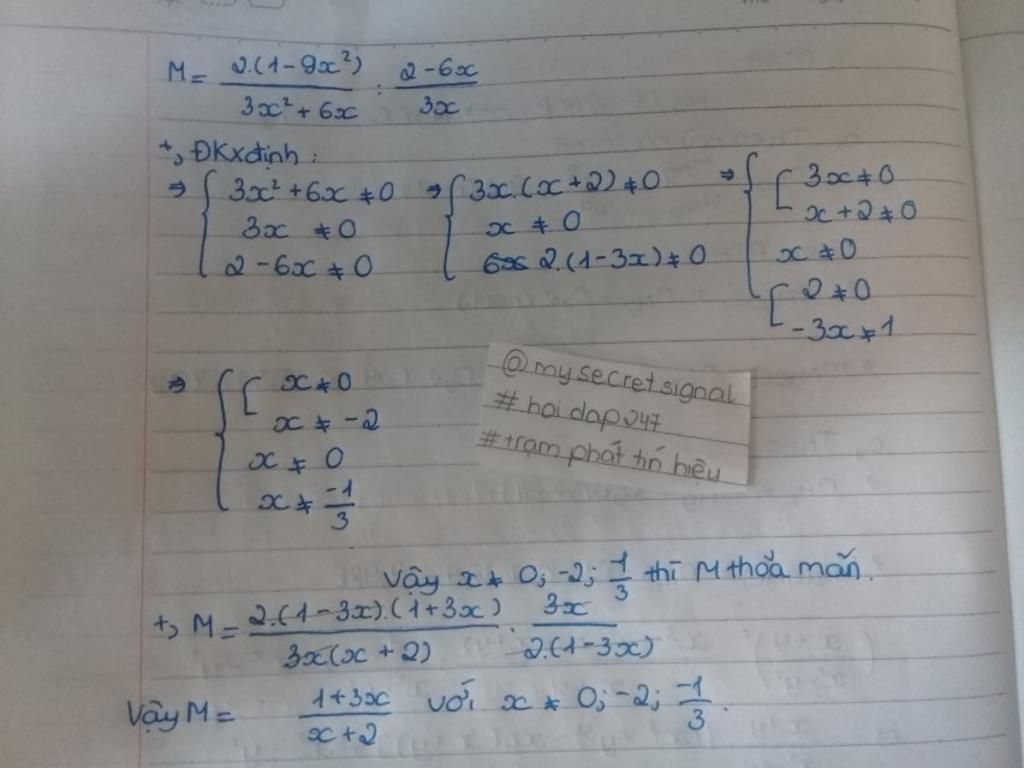 M = \frac{2.(1-9x²)}{3x²+6x} : \frac{2-6x}{3x}
+, ĐKxđịnh :
⇒ { 3x²+6x ≠ 0 ⇒ { 3x.(x+2) ≠ 0 ⇒ { [ 3x ≠ 0
3x ≠ 0 x ≠ 0 x+2 ≠ 0
2-6x ≠ 0 2.(1-3x) ≠ 0 x ≠ 0
[ 2 ≠ 0
-3x ≠ 1
⇒ { [ x ≠ 0
x ≠ -2
x ≠ 0
x ≠ \frac{-1}{3}
@mysecretsignal
#hoidap247
#trạm phát tín hiệu
Vậy x ≠ 0; -2; \frac{-1}{3} thì M thỏa mãn.
+, M = \frac{2.(1-3x).(1+3x)}{3x(x+2)} . \frac{3x}{2.(1-3x)}
Vậy M = \frac{1+3x}{x+2} với x ≠ 0; -2; \frac{-1}{3}.